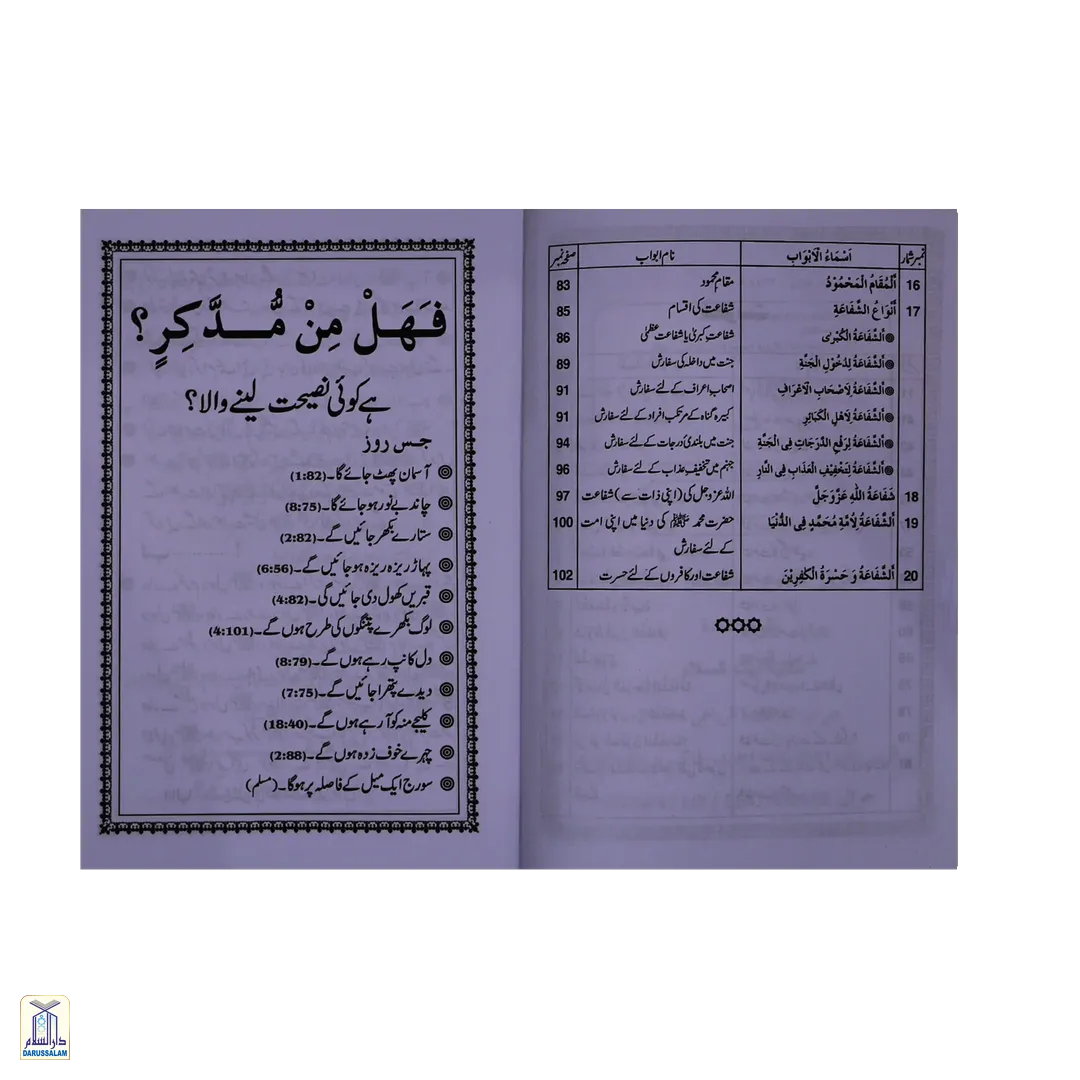 نمبر شمار اَسْمَاءُ الْاَبْوَابِ نام ابواب صفحہ نمبر
16 اَلْمُقَامُ الْمَحْمُوْدُ مقامِ محمود 83
17 اَنْوَاعُ الشَّفَاعَةِ شفاعت کی اقسام 85
اَلشَّفَاعَةُ الْكُبْرٰی شفاعتِ کبریٰ یا شفاعت عظمیٰ 86
اَلشَّفَاعَةُ لِدُخُوْلِ الْجَنَّةِ جنت میں داخلہ کی سفارش 89
اَلشَّفَاعَةُ لِاَصْحَابِ الْاَعْرَافِ اصحاب اعراف کے لئے سفارش 91
اَلشَّفَاعَةُ لِاَهْلِ الْكَبَائِرِ کبیرہ گناہ کے مرتکب افراد کے لئے سفارش 91
اَلشَّفَاعَةُ لِرَفْعِ الدَّرَجَاتِ فِی الْجَنَّةِ جنت میں بلندی درجات کے لئے سفارش 94
اَلشَّفَاعَةُ لِتَخْفِيْفِ الْعَذَابِ فِی النَّارِ جہنم میں تخفیفِ عذاب کے لئے سفارش 96
18 شَفَاعَةُ اللّٰهِ عَزَّوَجَلَّ اللہ عزوجل کی (اپنی ذات سے) شفاعت 97
19 اَلشَّفَاعَةُ لِأُمَّةِ مُحَمَّدٍ فِی الدُّنْيَا حضرت محمد ﷺ کی دنیا میں اپنی امت 100
کے لئے سفارش
20 اَلشَّفَاعَةُ وَ حَسْرَةُ الْكٰفِرِيْنَ شفاعت اور کافروں کے لئے حسرت 102
فَهَلْ مِنْ مُّدَّكِرٍ؟
ہے کوئی نصیحت لینے والا؟
جس روز
آسمان پھٹ جائے گا۔ (1:82)
چاند بے نور ہو جائے گا۔ (8:75)
ستارے بکھر جائیں گے۔ (2:82)
پہاڑ ریزہ ریزہ ہو جائیں گے۔ (6:56)
قبریں کھول دی جائیں گی۔ (4:82)
لوگ بکھرے پتنگوں کی طرح ہوں گے۔ (4:101)
دل کانپ رہے ہوں گے۔ (8:79)
دیدے پتھرا جائیں گے۔ (7:75)
کلیجے منہ کو آ رہے ہوں گے۔ (18:40)
چہرے خوف زدہ ہوں گے۔ (2:88)
سورج ایک میل کے فاصلہ پر ہوگا۔ (مسلم)
دارالسلام
DARUSSALAM